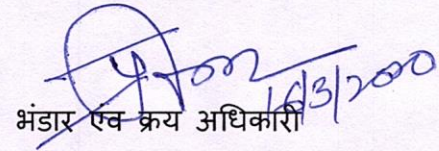 16/3/2000
भंडार एंव क्रय अधिकारी